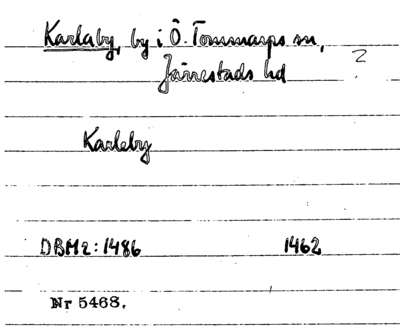 Karlaby, by i Ö. Tommarps sn,
Järrestads hd ?
Karleby
DBM2: 1486 1462
Nr 5468.